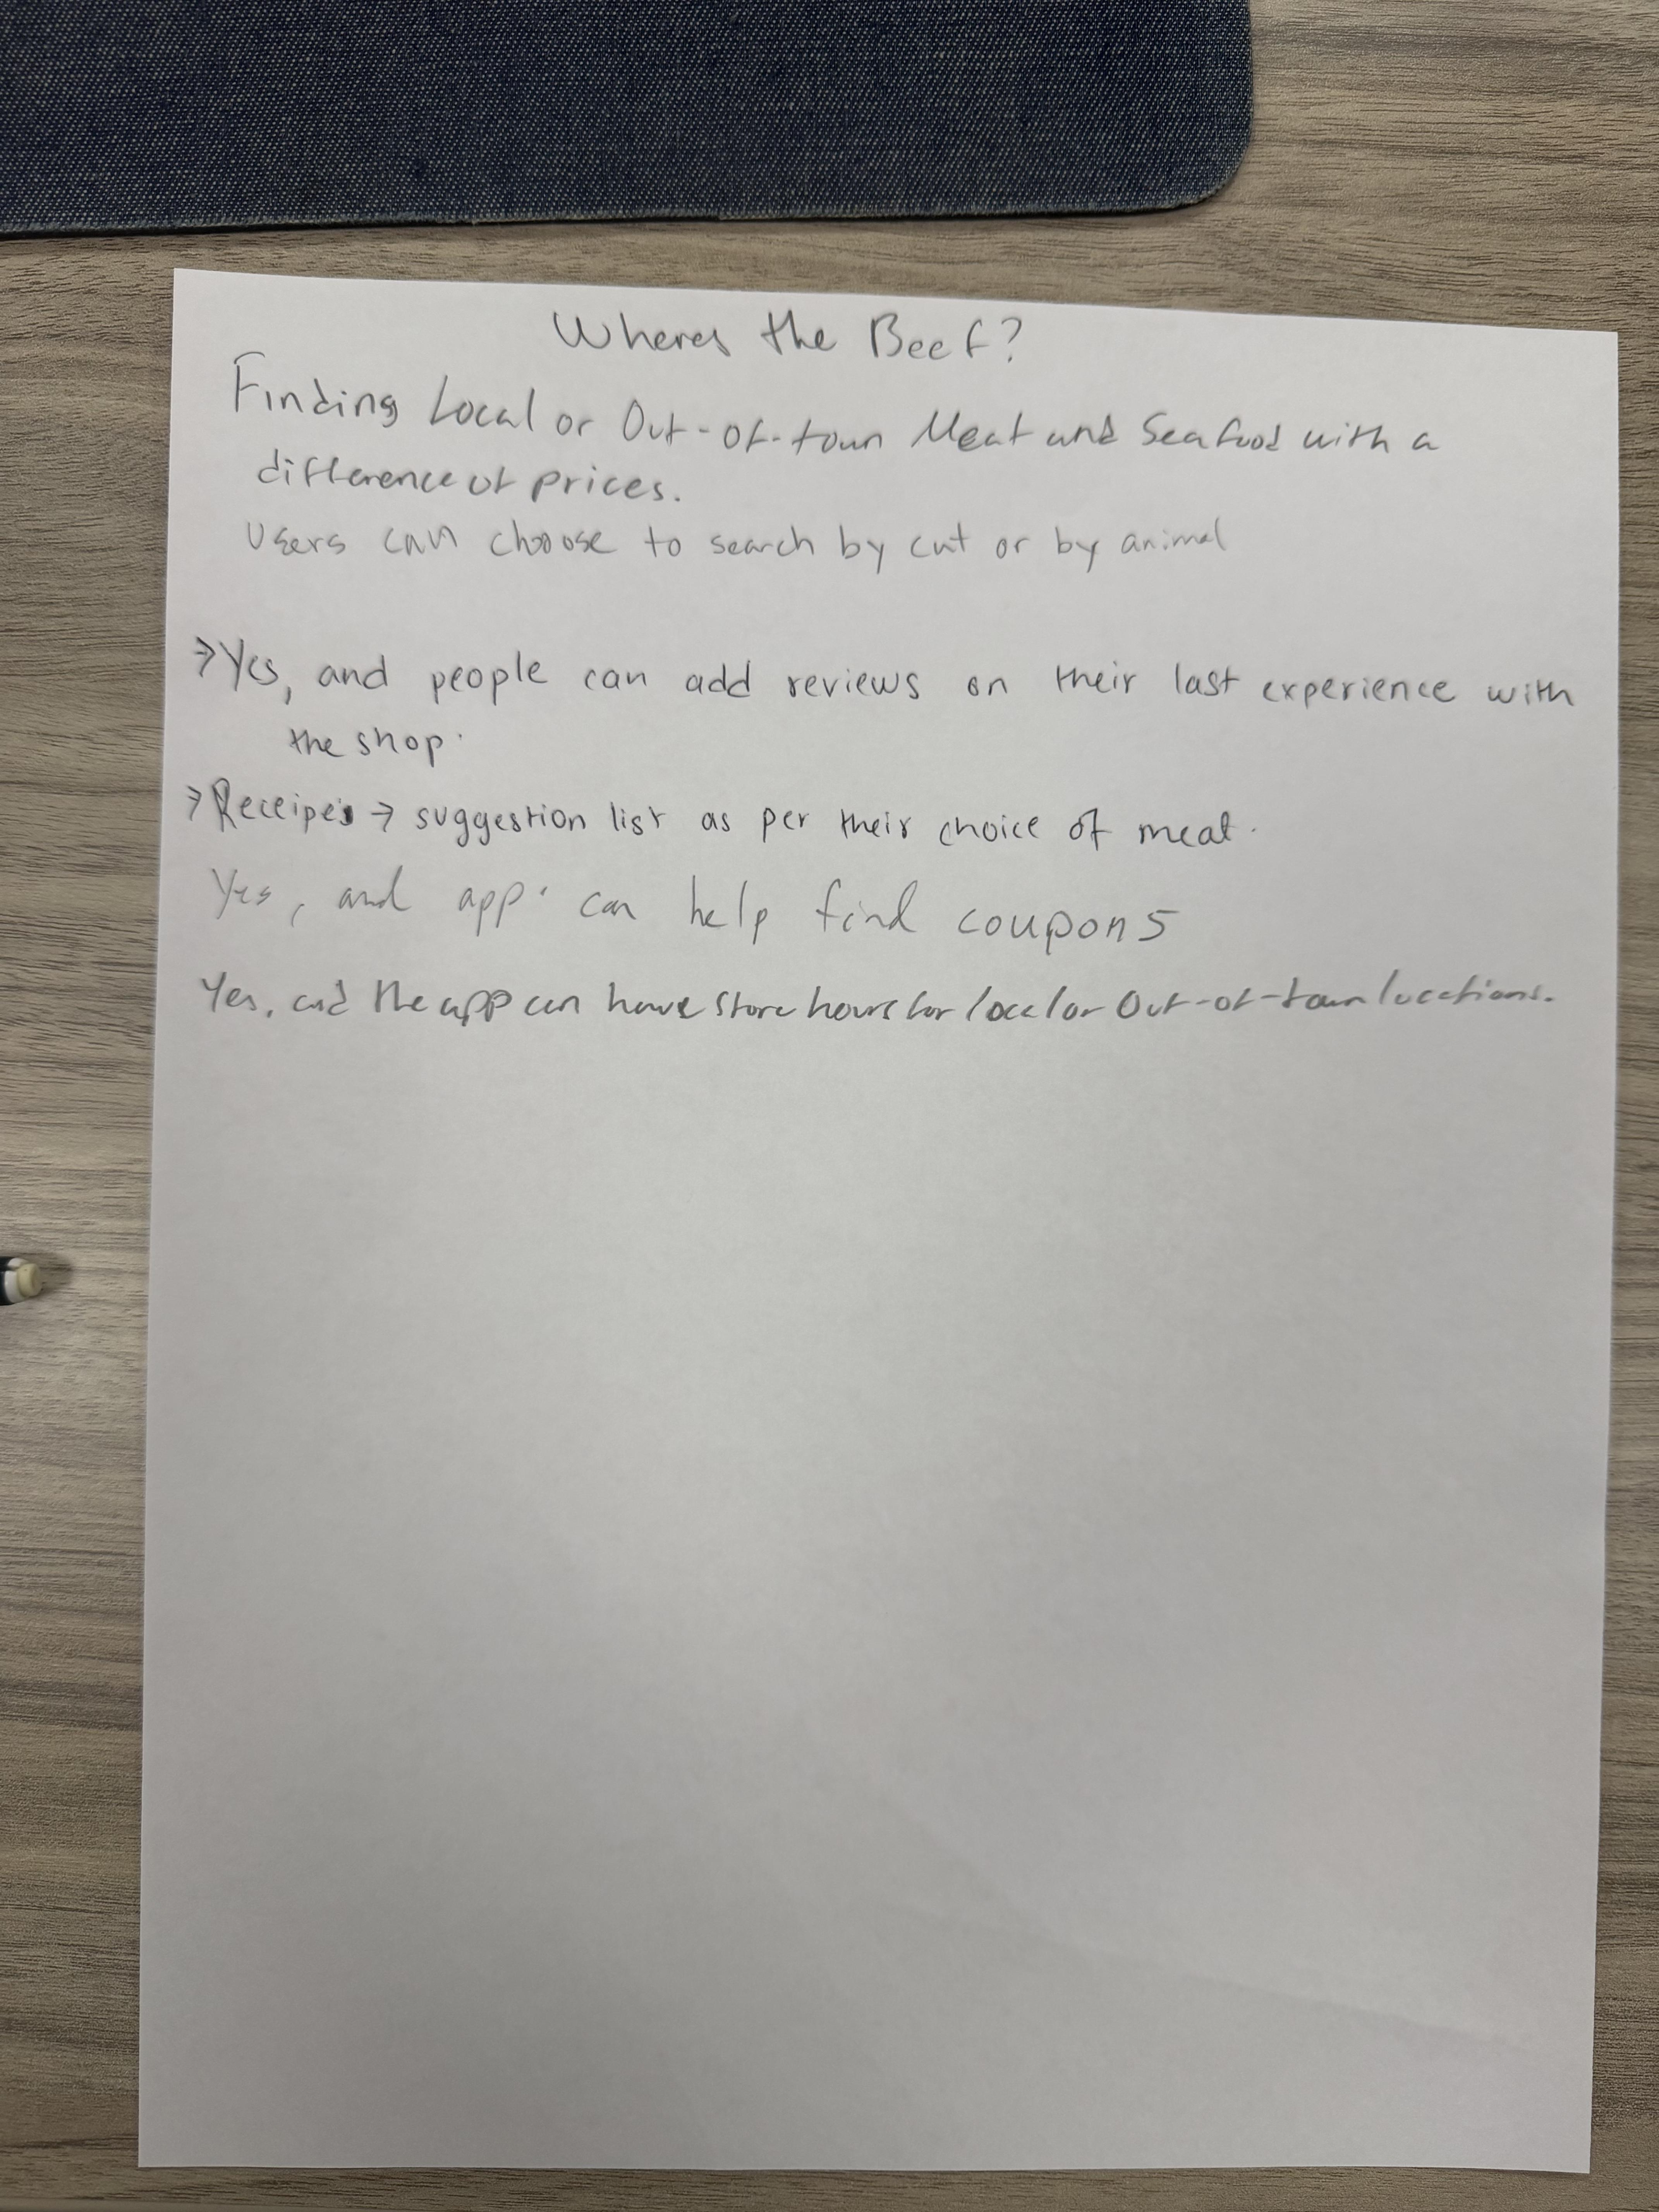 Wheres the Beef?
Finding Local or Out-of-town Meat and Seafood with a
difference of prices.
Users can choose to search by cut or by animal
→Yes, and people can add reviews on their last experience with
the shop.
→Receipe's → suggestion list as per their choice of meat.
Yes, and app can help find coupons
Yes, and the app can have store hours for local or Out-of-town locations.